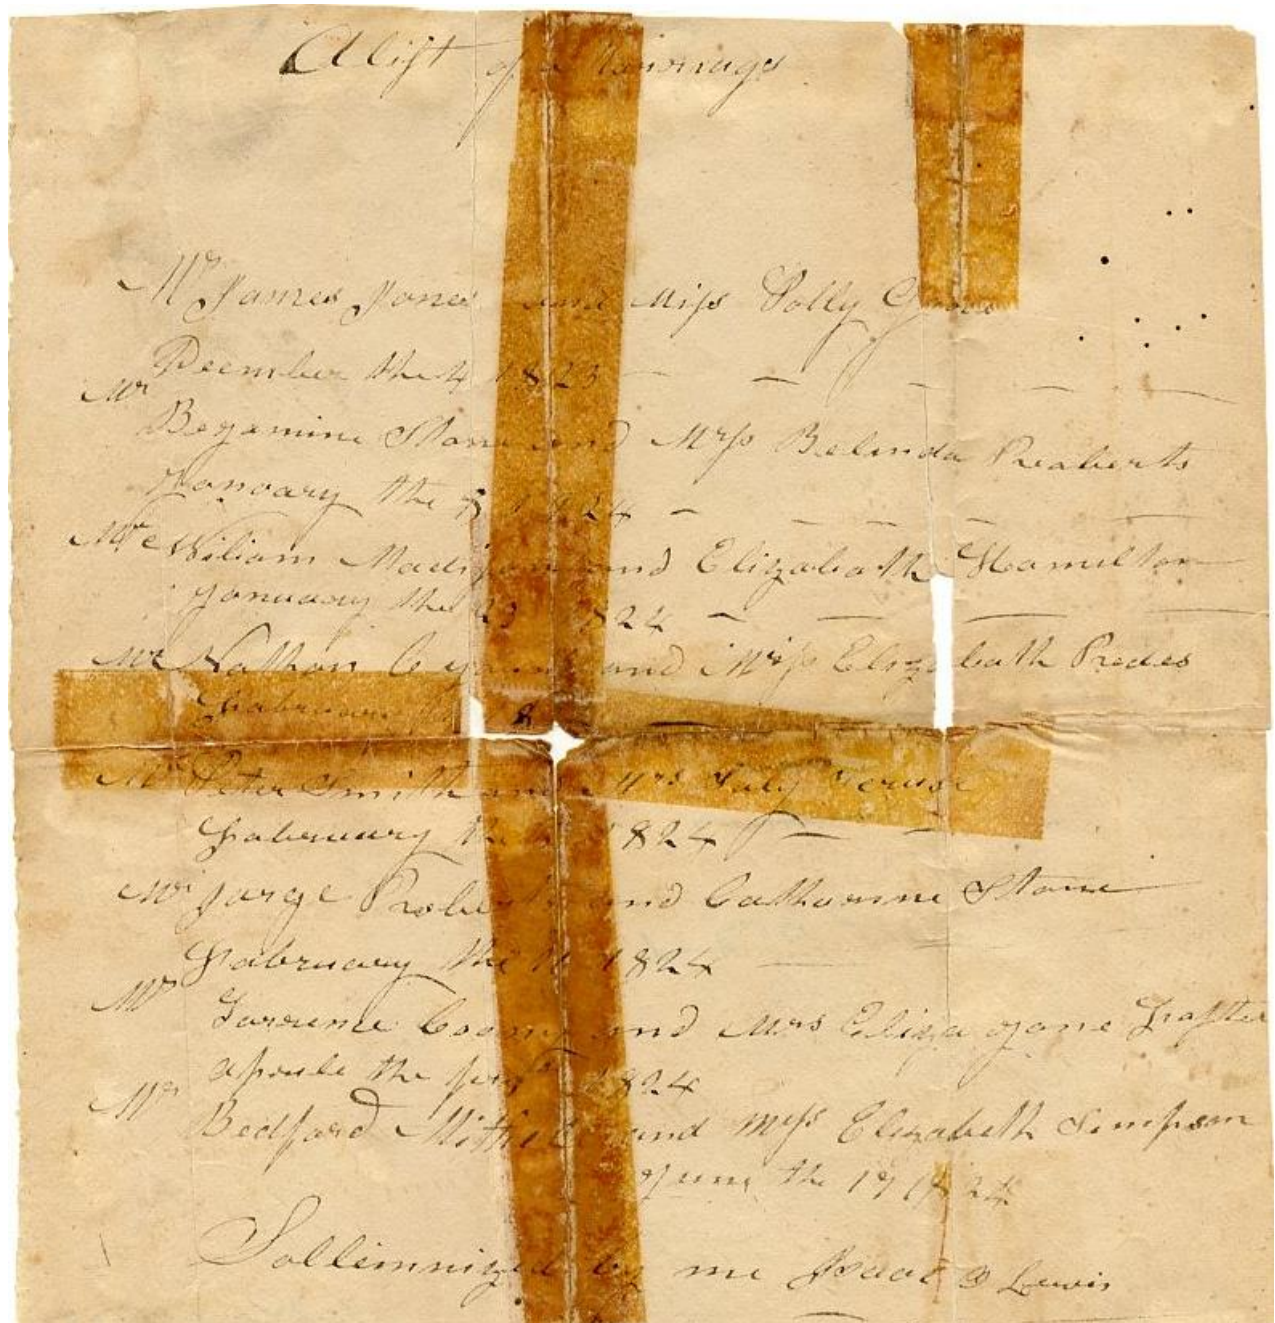 A list of Marriages
Mr James Jones and Miss Polly
December the 4 1823
Mr
Benjamine Stone and Miss Belinda Roaberts
Janoary the 1824
Mr Wiliam Madison and Elizabeath Hamilton
Januoary the 23 1824
Mr Nathan and Miss Elizabath
Fabruary the 8
Mr Peter Smith and Mrs
Fabruary the 1824
Mr Jorge Roberts and Catharine Stone
Fabruary the 11 1824
Mr
and Mrs Eliza Jane
the 1824
Mr
Bedford and Miss Elizabeth Simpson
June the 17 1824
Sollemnized by me Isaac Lewis